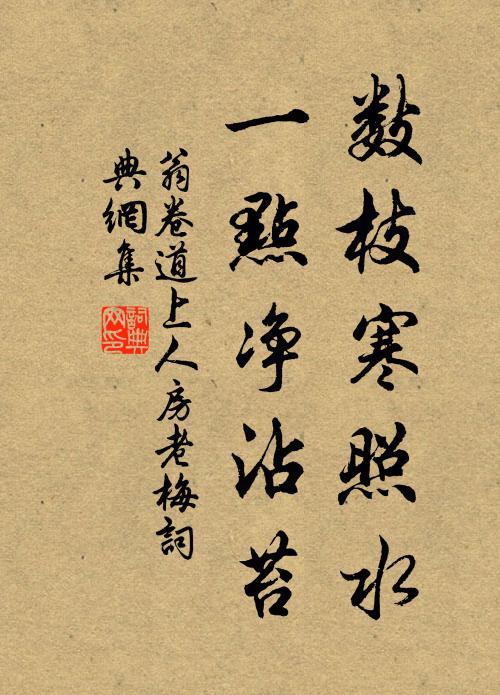 數枝寒照水
一點淨沾苔
翁卷道上人房老梅詞
典網集
詞典網印